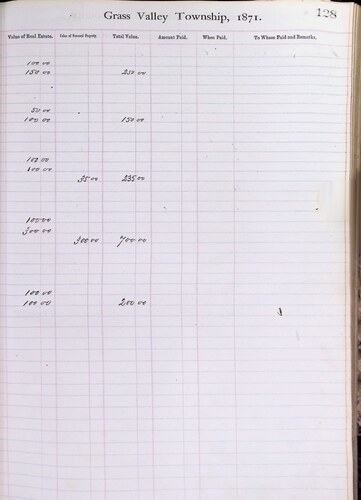 Grass Valley Township, 1871. 128
Value of Real Estate. Value of Personal Property. Total Value. Amount Paid. When Paid. To Whom Paid and Remarks.
100 00
150 00 250 00
50 00
100 00 150 00
100 00
100 00
35 00 235 00
100 00
300 00
300 00 700 00
100 00
100 00 200 00